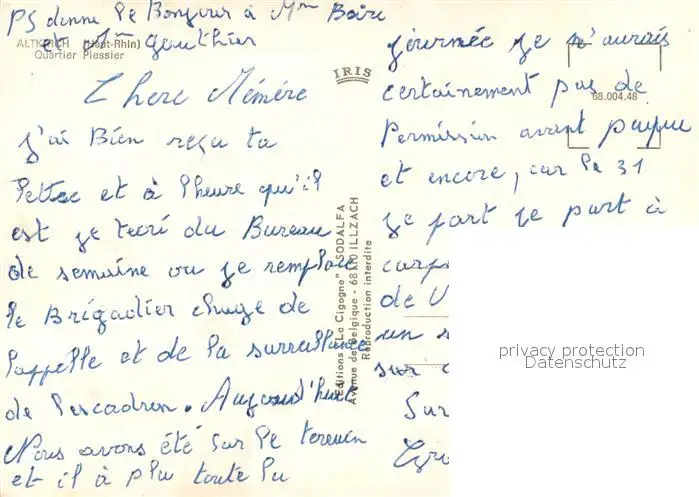 PS donne le Bonjour à Mme Boire
et Mme Gauthier
ALTKIRCH (Haut-Rhin)
Quartier Plessier
Chere Mémére
J'ai Bien reçu ta
lettre et à l'heure qu'il
est je t'ecri du Bureau
de semaine ou je remplace
le Brigadier chargé de
l'appelle et de la surveillance
de l'escadron. Aujourd'huit
Nous avons été sur le terrein
et il à plu toute la
IRIS
Editions "La Cigogne" - SODALFA
Avenue de Belgique - 68110 ILLZACH
Reproduction interdite
68.004.48
journée je n'aurais
certainement pas de
Permission avant
et encore, car le 31
je part je part à
de V
un s
sur
Sur
privacy protection
Datenschutz